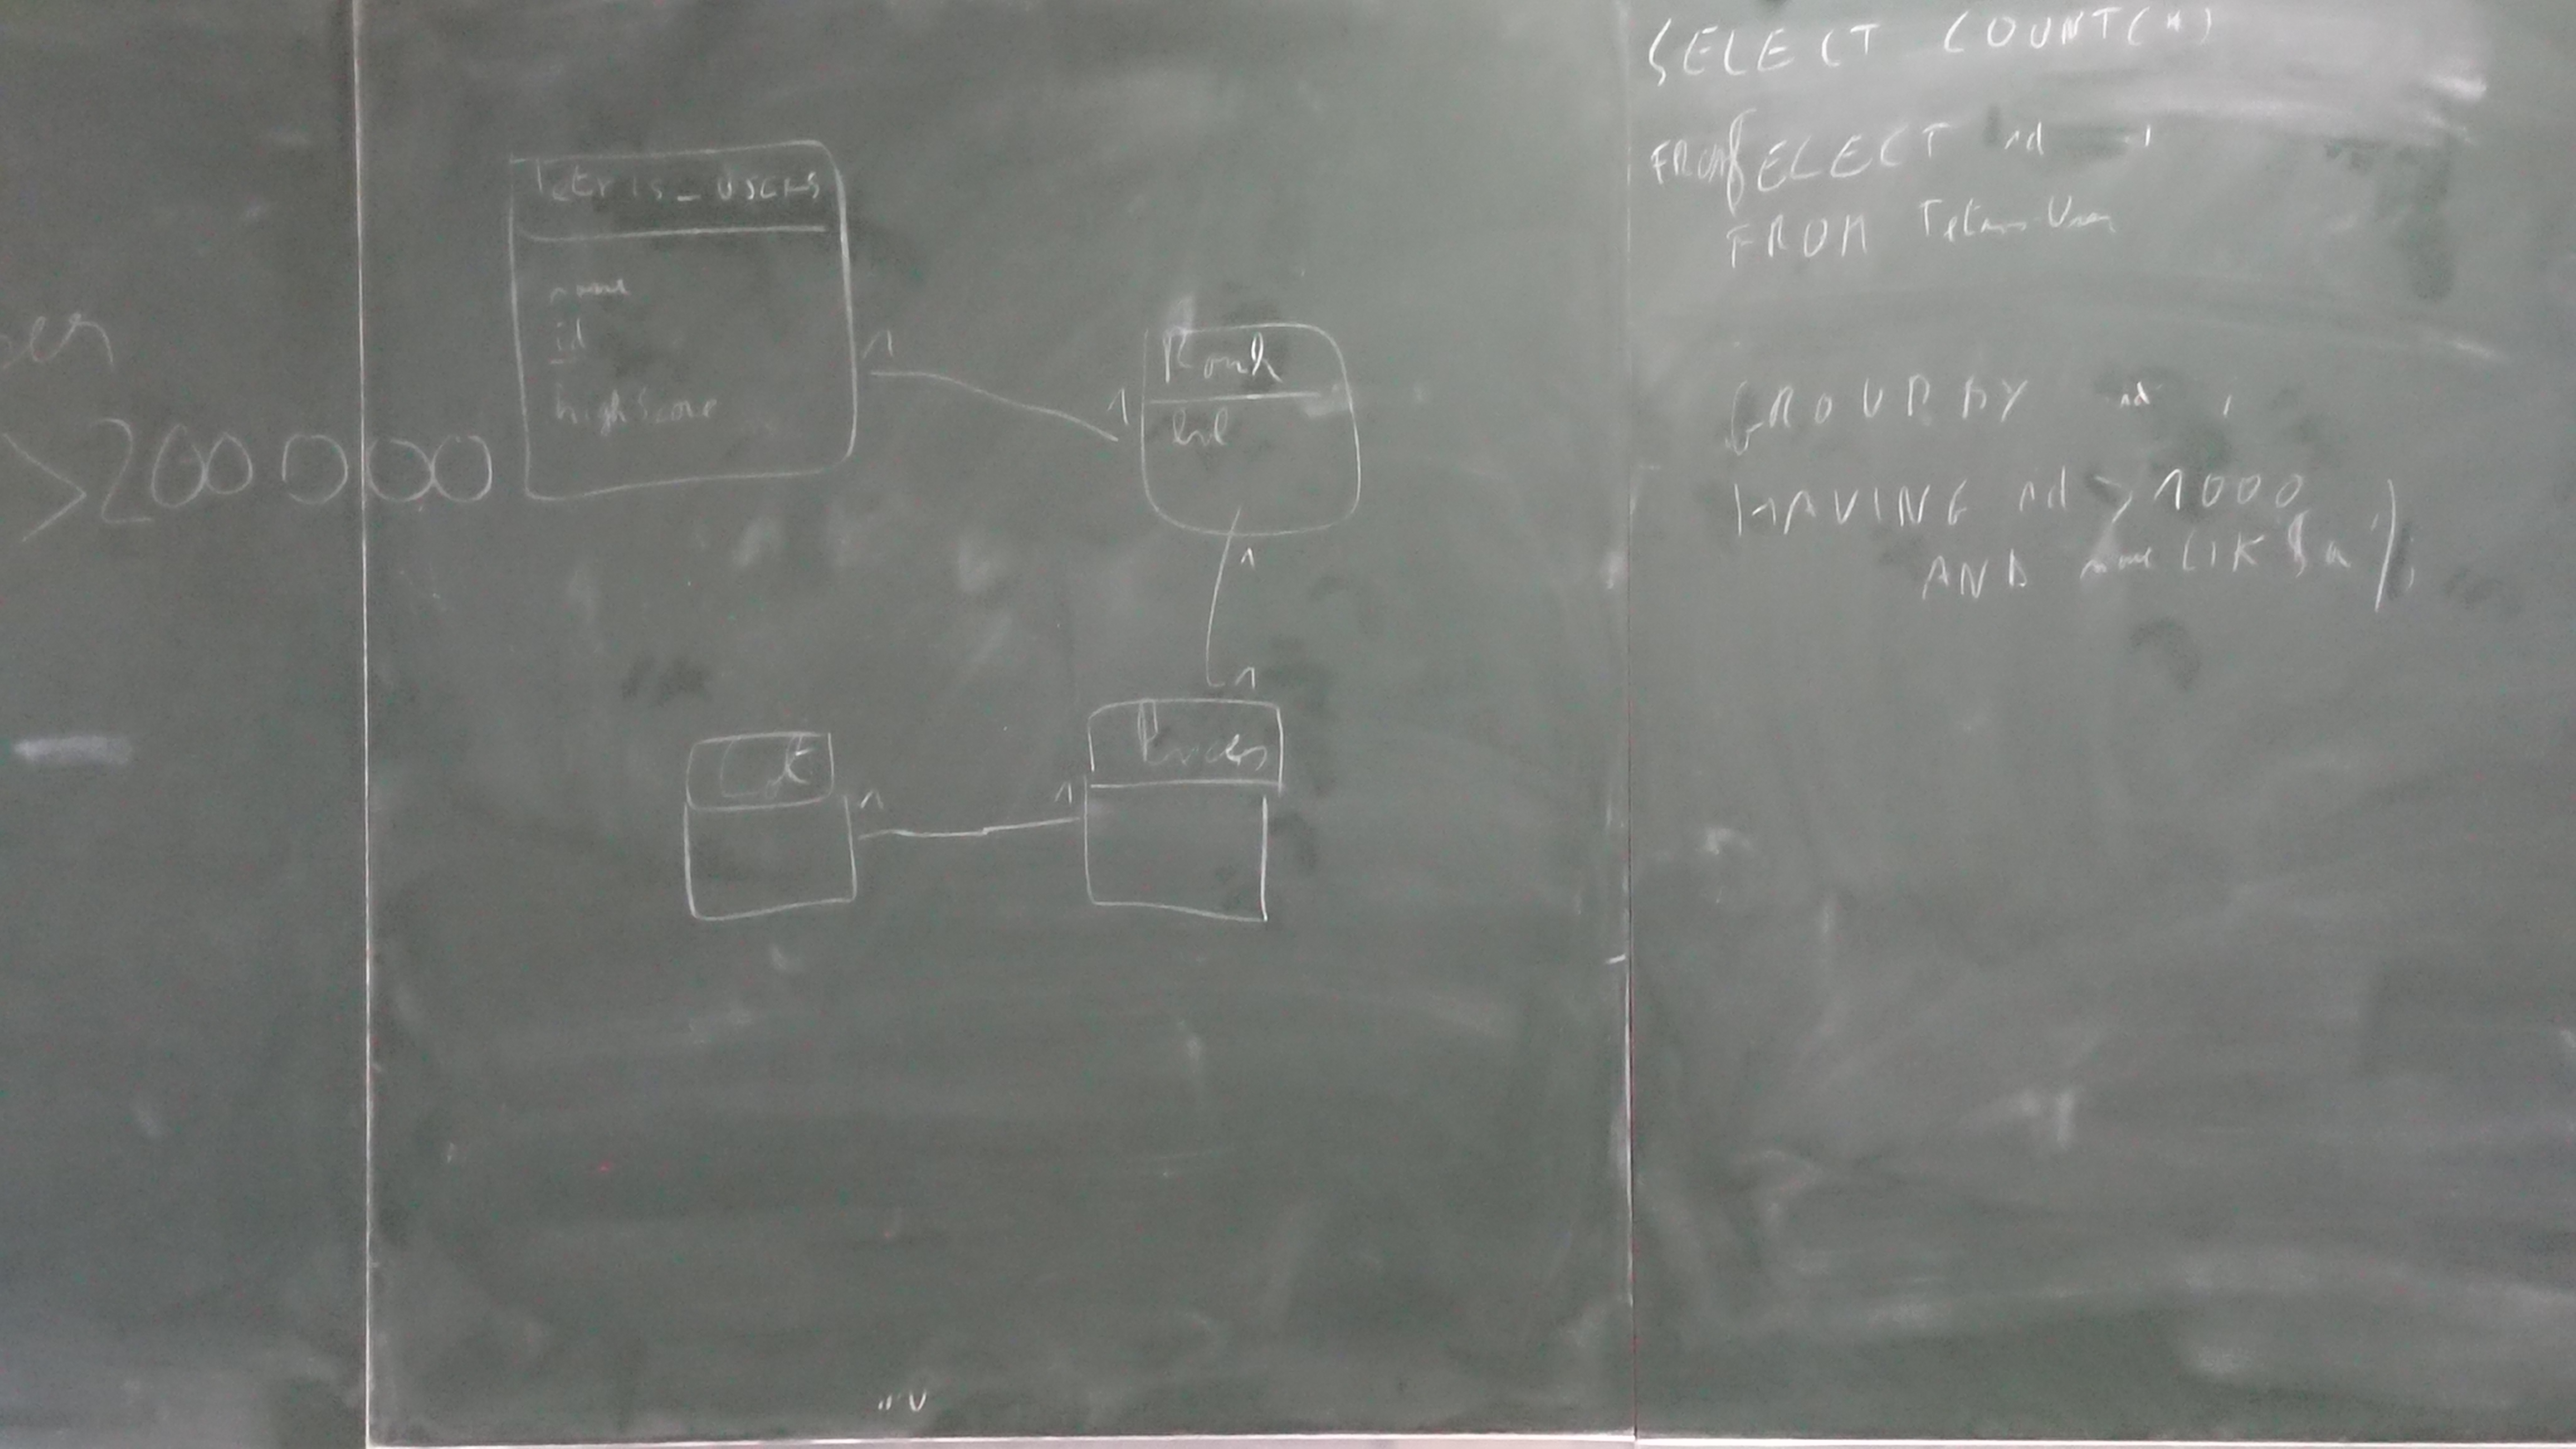 >200000
Tetris_users
name
id
highscore
1
1
Rank
lvl
1
1
1
1
SELECT COUNT(*)
FROM(SELECT id
FROM Tetris-User
GROUP BY id
HAVING id > 1000
AND name LIK